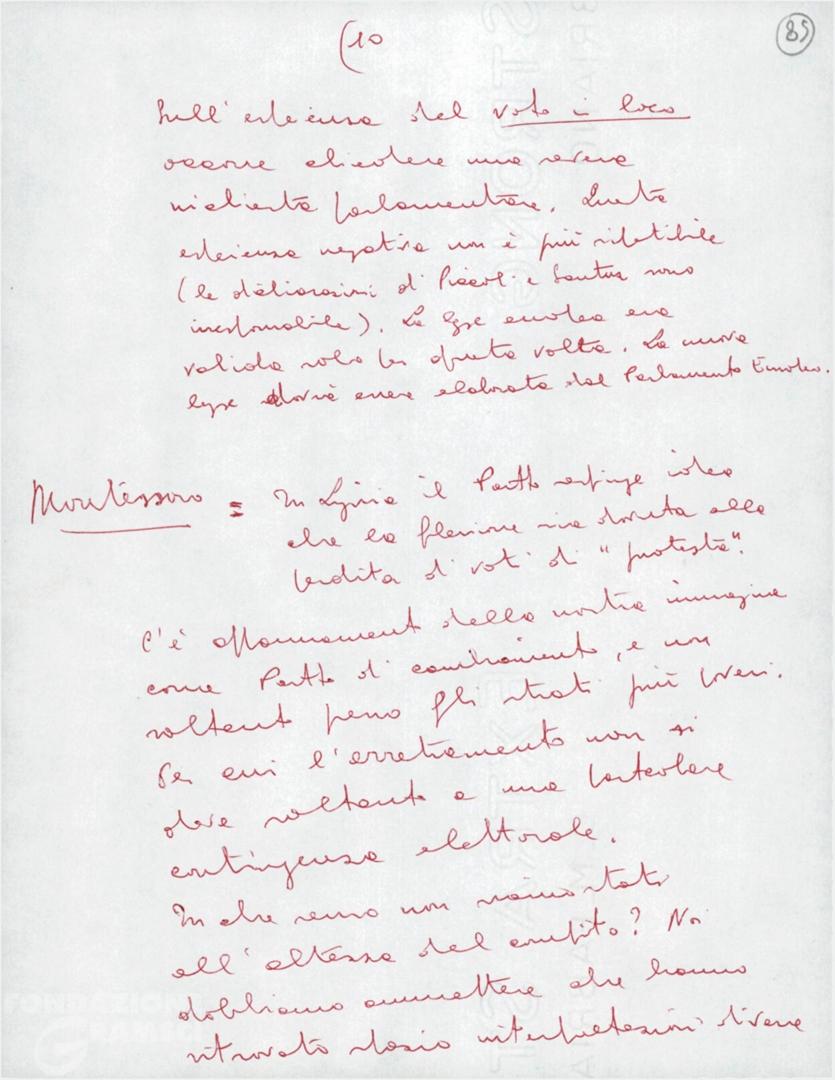 (10
85
Sull'esperienza del voto in loco
occorre chiedere una severa
inchiesta parlamentare. Questa
esperienza negativa non è più ripetibile
(le dichiarazioni di Piccoli e Santuz sono
inesplicabile). La legge europea era
valida solo per questa volta. La nuova
legge dovrà essere elaborata dal Parlamento Europeo.
Montessoro = In Liguria il Partito respinge idea
che la flessione sia dovuta alla
perdita di voti di "protesta".
C'è appannamento della nostra immagine
come Partito di cambiamento, e non
soltanto presso gli strati più poveri.
Per cui l'arretramento non si
deve soltanto a una particolare
contingenza elettorale.
In che senso non siamo stati
all'altezza del compito? Noi
dobbiamo ammettere che hanno
ritrovato spazio interpretazioni diverse
FONDAZIONE
GRAMSCI